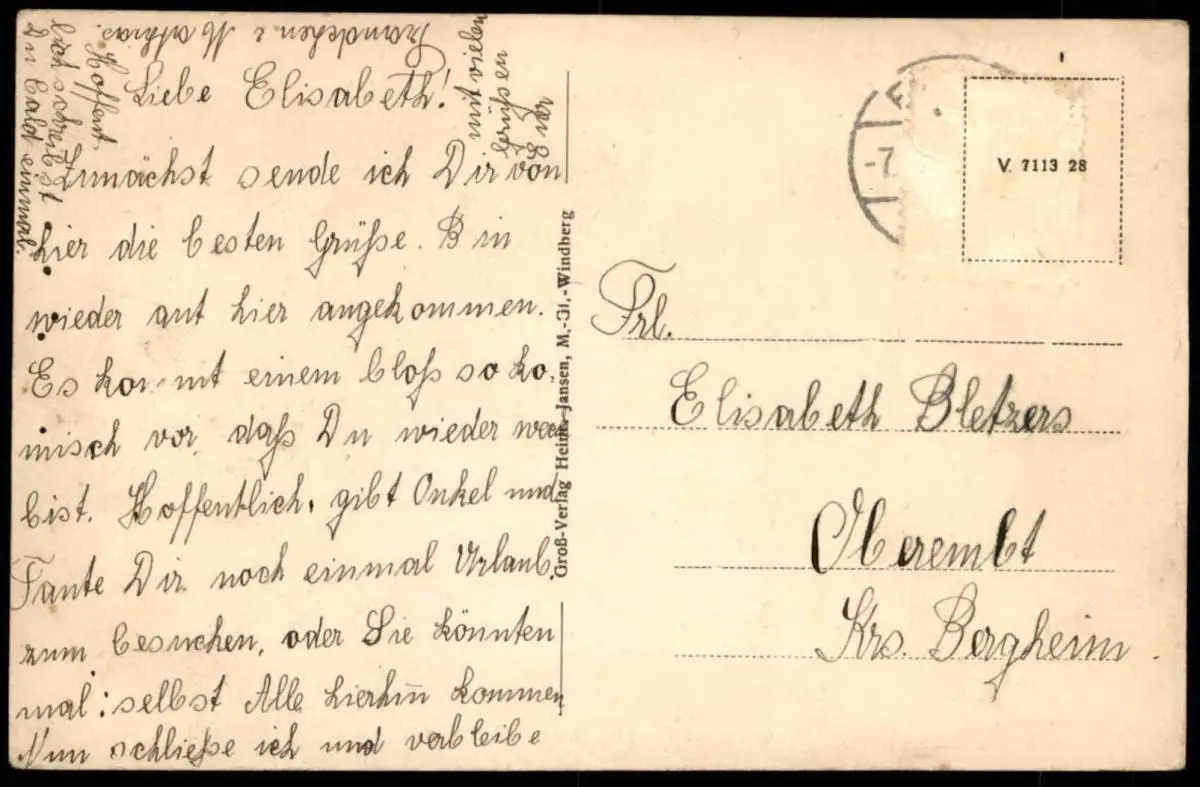 Liebe Elisabeth!
Zunächst sende ich Dir von
hier die besten Grüße. Bin
wieder gut hier angekommen.
Es kommt einem bloß so ko-
misch vor, daß Du wieder weg
bist. Hoffentlich gibt Onkel und
Tante Dir noch einmal Urlaub
zum besuchen, oder Sie könnten
mal selbst Alle hierhin kommen
Nun schließe ich und verbleibe
mit vielen
Grüßen
Euer
Mathias
Hoffent-
lich schreibst
Du bald einmal.
Groß-Verlag Heinr. Jansen, M.-Gl.-Windberg
-7.
V. 7113 28
Frl.
Elisabeth Bletzers
Oberembt
Krs. Bergheim